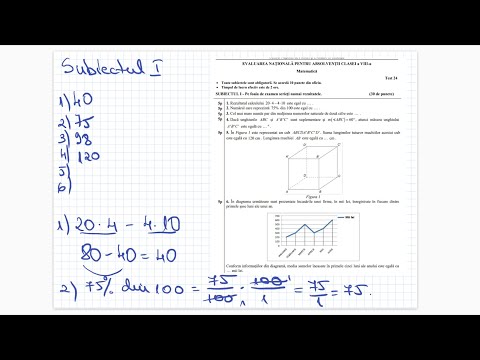 Subiectul I
1) 40
2) 75
3) 98
4) 120
5)
6)
1) 20 · 4 - 4 · 10
80 - 40 = 40
2) 75% din 100 = 75/100 · 100/1 = 75/1 = 75.
EVALUAREA NAȚIONALĂ PENTRU ABSOLVENȚII CLASEI a VIII-a
Matematică
Test 24
• Toate subiectele sunt obligatorii. Se acordă 10 puncte din oficiu.
• Timpul de lucru efectiv este de 2 ore.
SUBIECTUL I - Pe foaia de examen scrieți numai rezultatele. (30 de puncte)
5p 1. Rezultatul calculului 20·4-4·10 este egal cu ....
5p 2. Numărul care reprezintă 75% din 100 este egal cu ....
5p 3. Cel mai mare număr par din mulțimea numerelor naturale de două cifre este egal cu ....
5p 4. Dacă unghiurile ABC și A'B'C' sunt suplementare și m(∢ABC)=60°, atunci măsura unghiului
A'B'C' este egală cu ... °.
5p 5. În Figura 1 este reprezentat un cub ABCDA'B'C'D'. Suma lungimilor tuturor muchiilor acestui cub
este egală cu 120 cm. Lungimea
Figura 1
5p 6. În diagrama următoare sunt prezentate încasările unei firme, în mii lei, înregistrate în fiecare dintre
primele șase luni ale unui an.
mii lei
Conform informațiilor din diagramă, media sumelor încasate în primele
... mii lei.